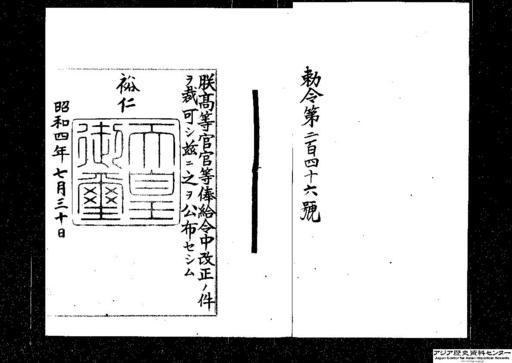 勅令第二百四十六號
朕高等官官等俸給令中改正ノ件
ヲ裁可シ玆ニ之ヲ公布セシム
裕仁
天皇
御璽
昭和四年七月三十日
アジア歴史資料センター
Japan Center for Asian Historical Records